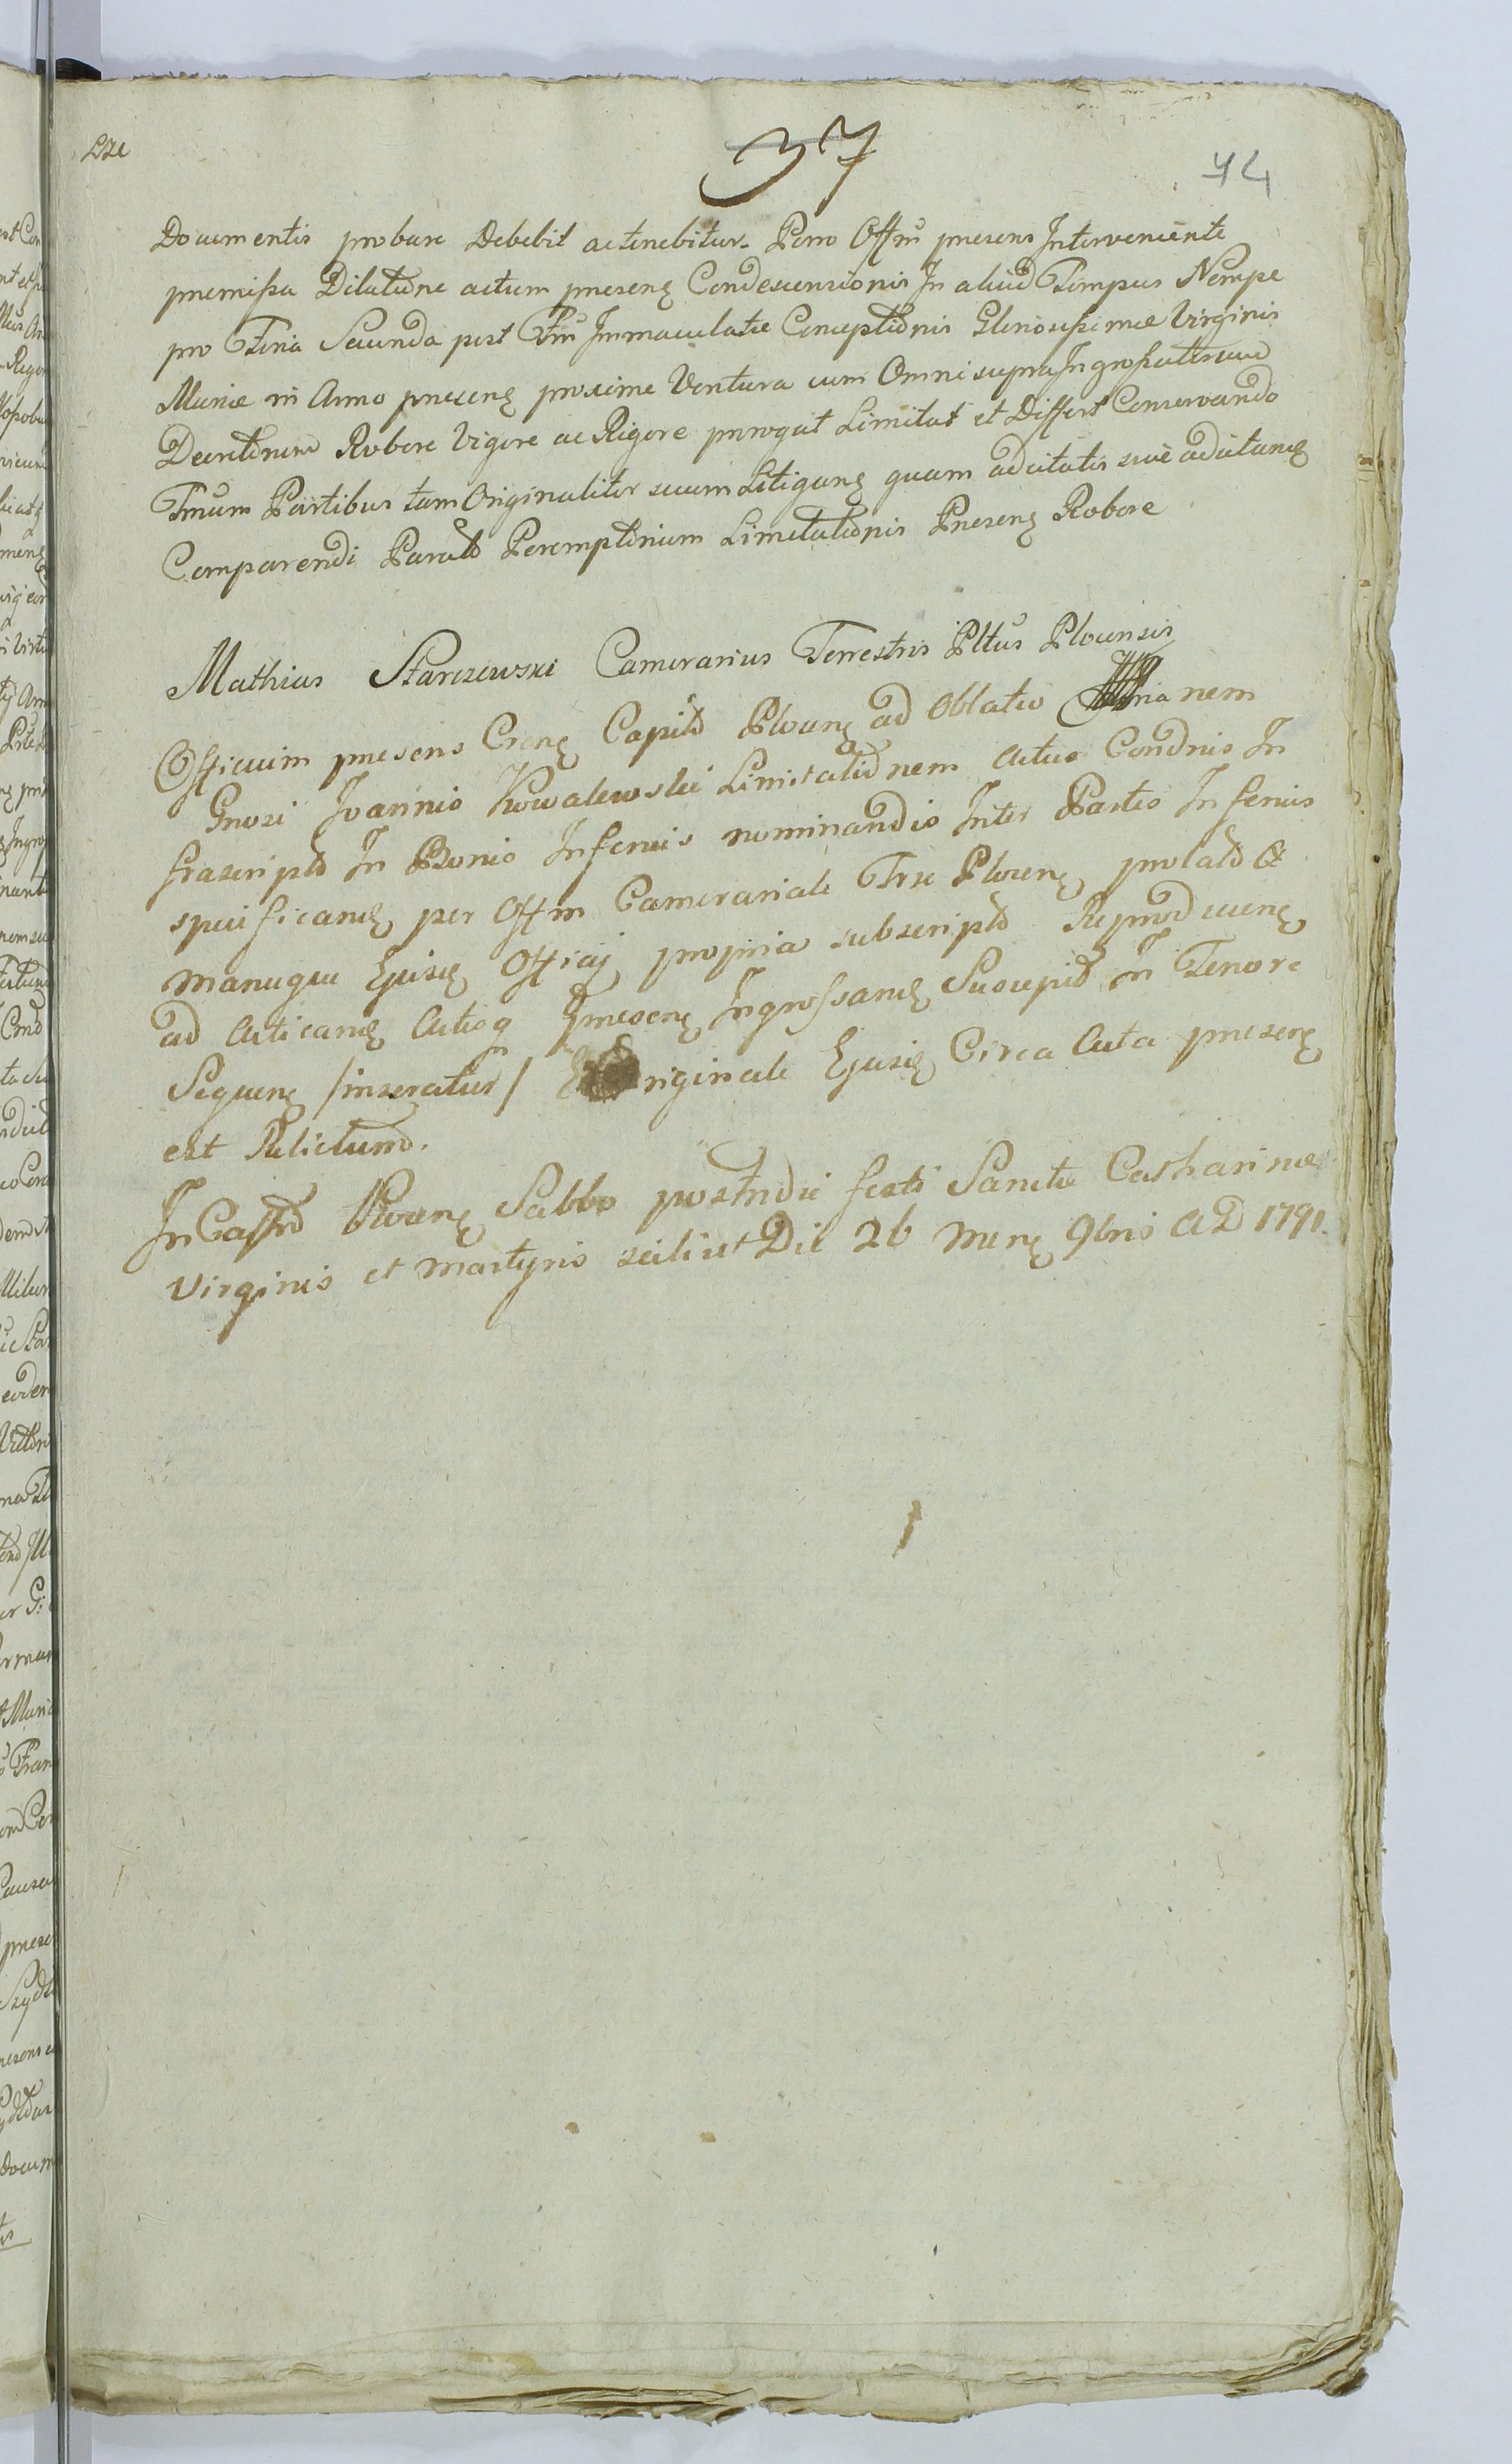 37
74
Documentis probare Debebit ac tenebitur. Porro Offm̃ præsens Interveniente
præmissa Dilatione actum præsenę Condescensionis In aliud Tempus Nempe
pro Feria Secunda post Ftũ Immaculatæ Conceptionis Gloriosissimæ Virginis
Mariæ in Anno præsenę proxime Ventura cum Omni supra Ingrossatorum
Decretorum Robore Vigore ac Rigore prorogat Limitat et Differt Conservando
Tmũm Partibus tam Originaliter suum Litiganę quam adcitatis suie adcitanę
Comparendi Parato Peremptorium Limitationis Præsenę Robore
Mathias Starczewski Camerarius Terrestris Pltũs Plocensis
Officium præsens Crenę Capitð Plocenę ad Oblatio nem
Gnosi Joannis Kowalewski Limitationem actus Condnis In
frascriptð In Bonis Inferius nominandis Inter Partes Inferius
specificanę per Offm Camerariale Trre Plocenę prolatð &
manuque Ejusę Officij propria subscriptð Reproducenę
ad acticanę Actisq præsenę Ingrossanę Suscepit In Tenore
Sequenę /inseratur/ riginale Ejusę Circa Acta præsenę
est Relictum.
In Castrð Plocenę Sabbo postridie festi Sanctæ Catharinæ
Virginis et Martyris scilicet Die 26 Menę 9bris AD 1791.